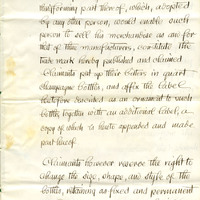 thereforming part thereof, which, adopted
by any other person, would enable such
person to sell his merchandise as and for
that of these manufacturers, constitute the
trade mark hereby published and claimed.
Claimants put up their bitters in quart
champagne bottles, and affix the label
heretofore described as an ornament to such
bottle, together with an additional label, a
copy of which is hereto appended and made
part hereof.
Claimants however reserve the right to
change the size, shape, and style of the
bottle, retaining as fixed and permanent